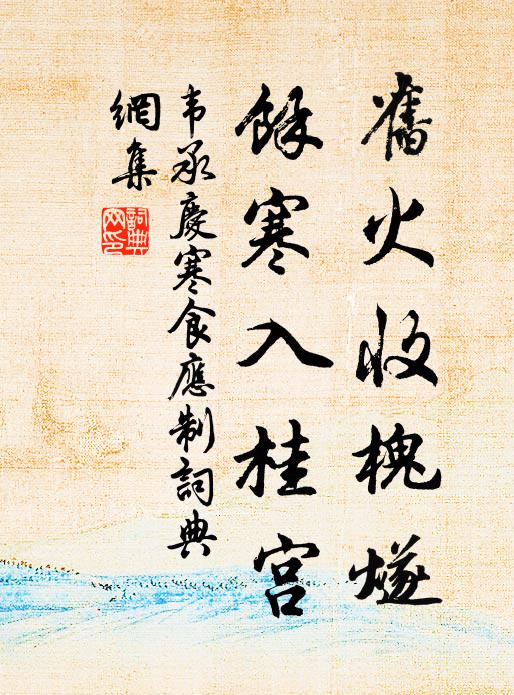 舊火收槐燧
餘寒入桂宮
韦承慶寒食應制詞典
網集
詞典網印